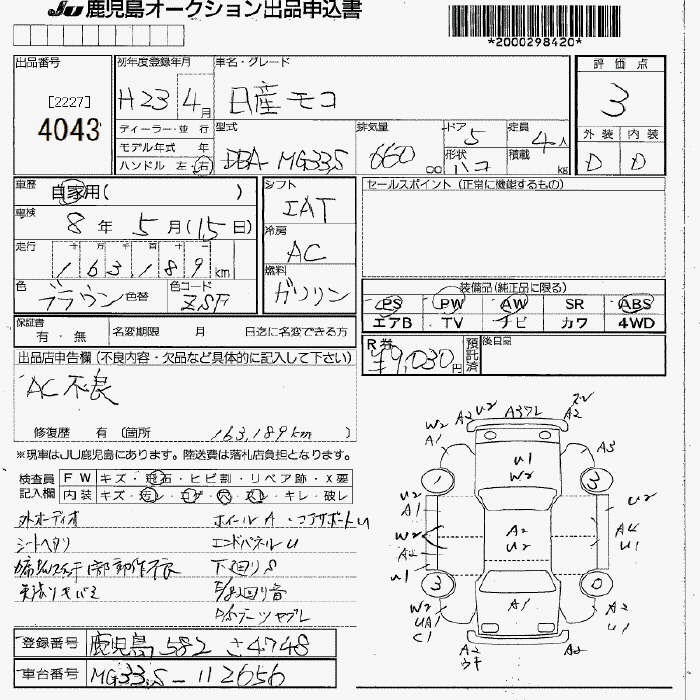 JU 鹿児島オークション出品申込書
*2000298420*
出品番号
[2227]
4043
初年度登録年月
H23 4月
車名・グレード
日産モコ
評価点
3
外装 内装
D D
ディーラー・並行
モデル年式 年
ハンドル 左・右
型式
DBA-MG33S
排気量
660 cc
ドア 5
形状 ハコ
定員 4人
積載 kg
車歴
自家用( )
車検
8年 5月(15日)
走行
163189km
色
ブラウン 色替
色コード
ZSF
シフト
IAT
冷房
AC
燃料
ガソリン
セールスポイント (正常に機能するもの)
装備品(純正品に限る)
PS PW AW SR ABS
エアB TV ナビ カワ 4WD
保証書
有・無
名変期限 月 日迄に名変できる方
R券
¥9,030円
預託済
後日品
出品店申告欄(不良内容・欠品など具体的に記入して下さい)
AC不良
修復歴 有(箇所 163,189km)
※現車はJU鹿児島にあります。陸送費は落札店負担となります。
検査員記入欄
FW キズ・飛石・ヒビ割・リペア跡・X要
内装 キズ・汚レ・コゲ・穴・スレ・キレ・破レ
外オーディオ
ホイールA・コアサポートU
シートヘタリ
エンドパネルU
下廻りS
登録番号 鹿児島582 さ4748
車台番号 MG33S-112656
W2 A2 U2 A37L A2
A1 A3
U1
W2
1 3
U2
A1
W2
A2
U1
A2
U2
U2
A4
U1
3 0
A1
W2
UA1
C1
A2
U1
A2
ウキ
A2